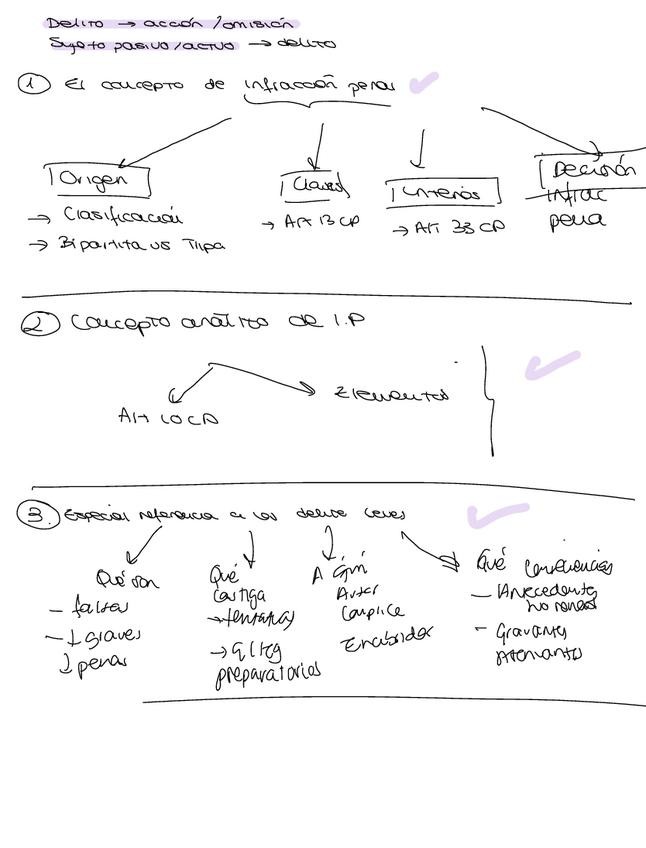 Delito → acción / omisión
Sujeto pasivo/activo → delito
① El concepto de infracción penal
Origen
→ Clasificación
→ Bipartita vs Tripa
Clases
→ Art 13 CP
Criterios
→ Art 33 CP
Decisión
infrac
pena
② Concepto analítico de I.P
Art 10 CP
Elementos
③ Especial referencia a los delitos leves
Qué son
- faltas
- ↓ graves
↓ penas
Qué
castiga
→ tentativas
→
preparatorios
A quién
Autor
Complice
Encubridor
Qué consecuencias
- Antecedentes
no
- Gravantes
Atenuantes